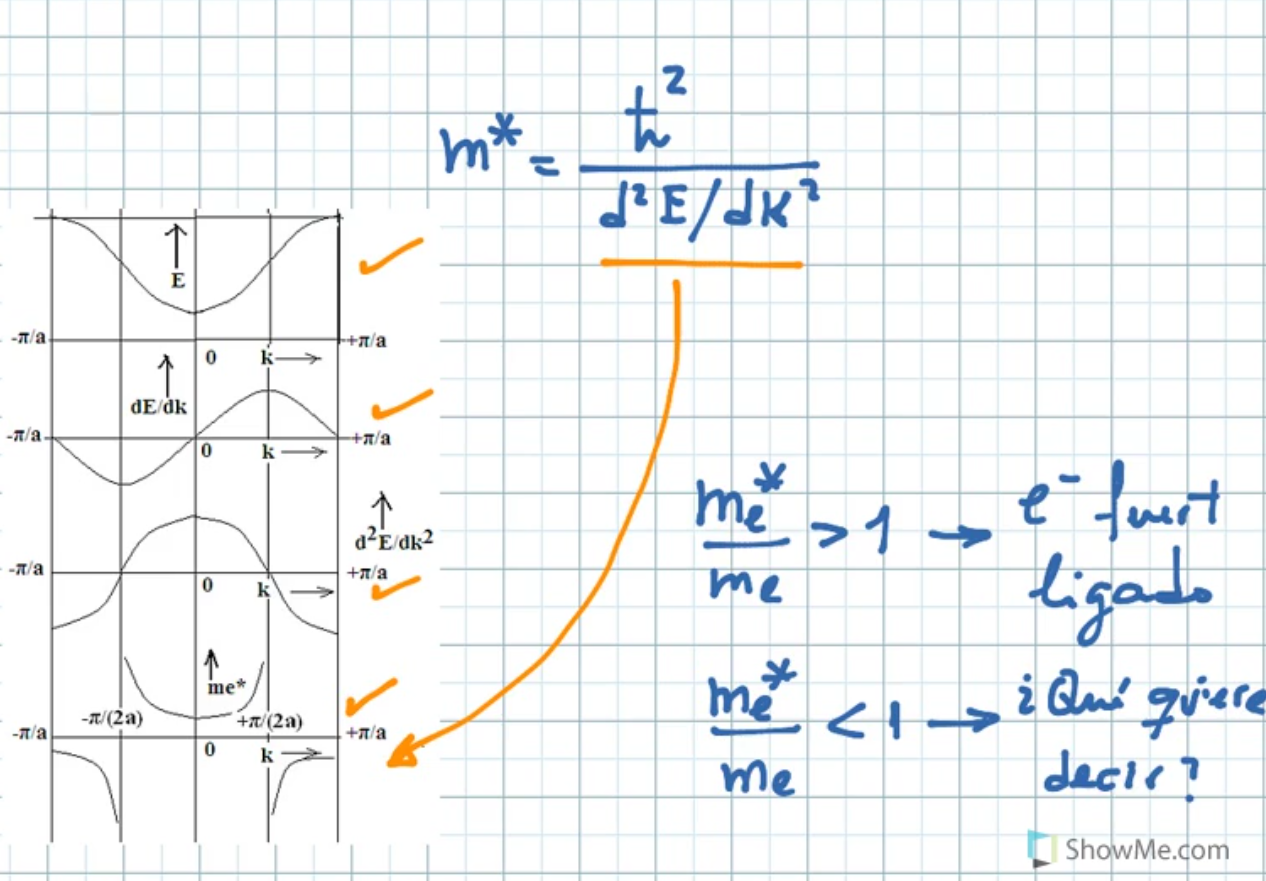 m* = ħ²
d²E/dk²
E
-π/a
0
k
+π/a
dE/dk
-π/a
0
k
+π/a
d²E/dk²
-π/a
0
k
+π/a
me*
-π/(2a)
+π/(2a)
-π/a
0
k
+π/a
me*/me > 1 → e⁻ fuert
ligado
me*/me < 1 → ¿Qué quiere
decir?
ShowMe.com